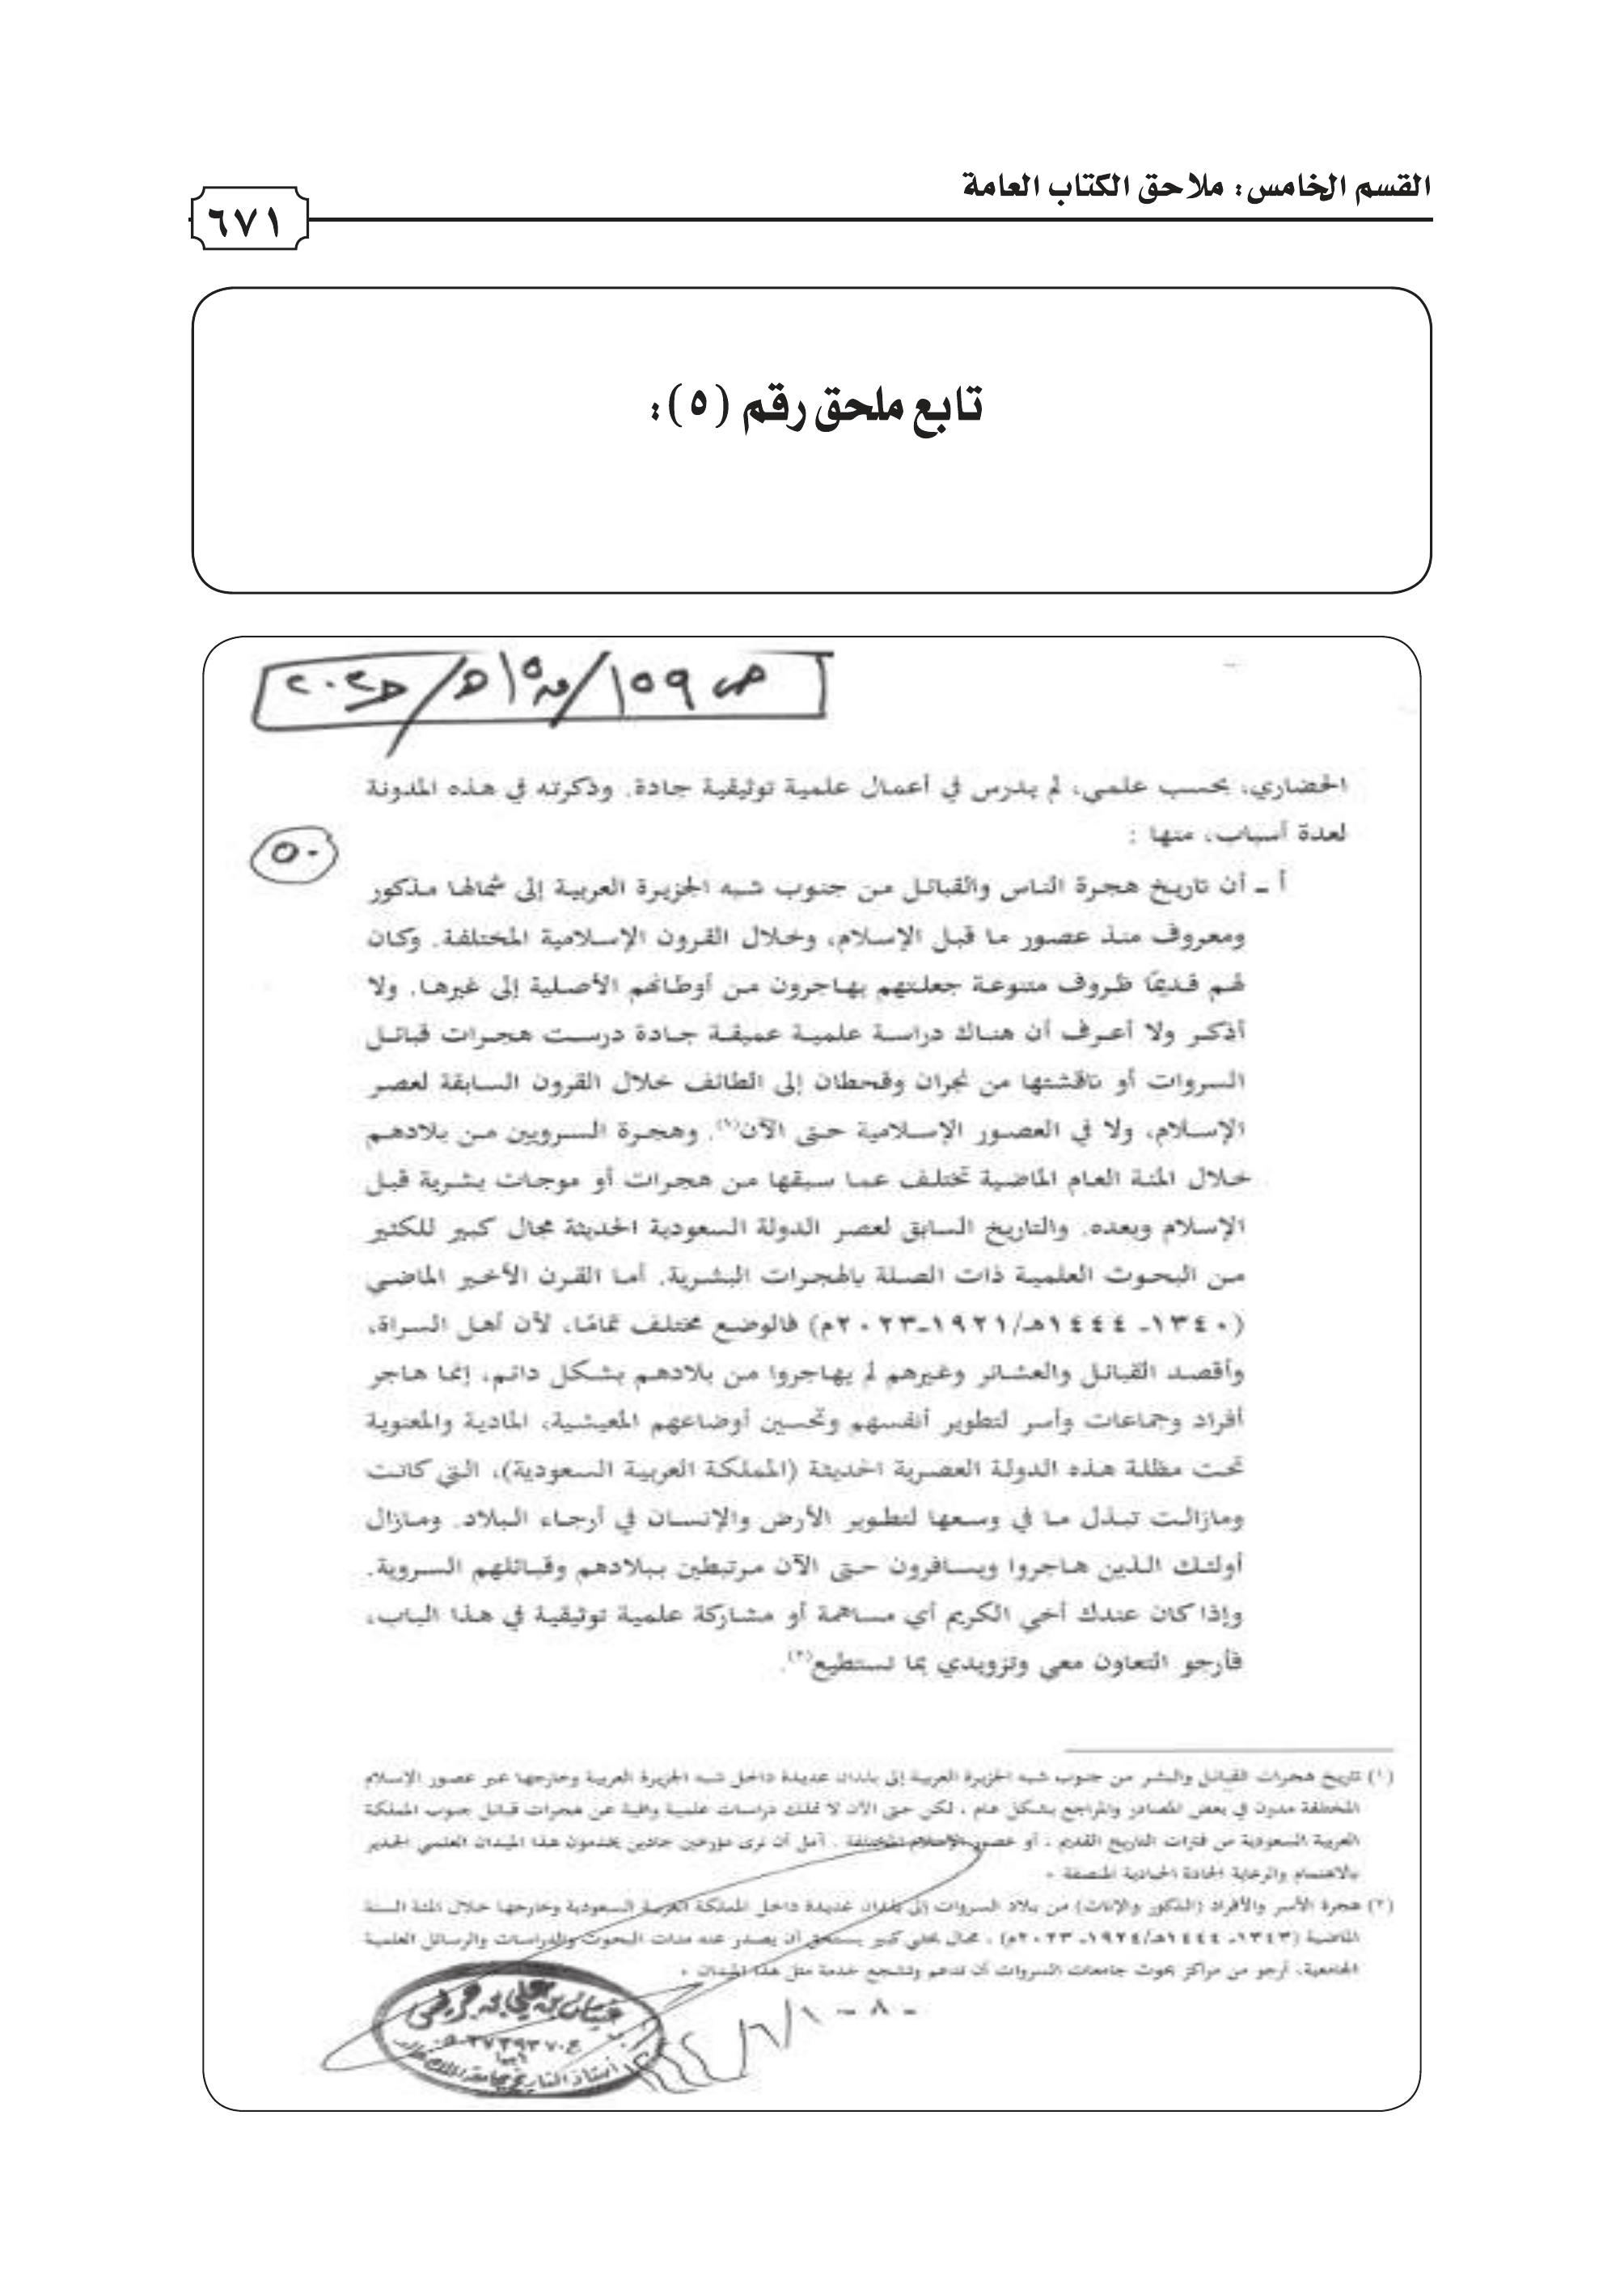 القسم الخامس: ملاحق الكتاب العامة
٦٧١
تابع ملحق رقم (٥):
ص ١٥٩
٥٠
الحضاري، بحسب علمي، لم يدرس في أعمال علمية توثيقية جادة. وذكرته في هذه المدونة
لعدة أسباب، منها :
أ ـ أن تاريخ هجرة الناس والقبائل من جنوب شبه الجزيرة العربية إلى شمالها مذكور
ومعروف منذ عصور ما قبل الإسلام، وخلال القرون الإسلامية المختلفة. وكان
لهم قديمًا ظروف متنوعة جعلتهم يهاجرون من أوطانهم الأصلية إلى غيرها. ولا
أذكر ولا أعرف أن هناك دراسة علمية عميقة جادة درست هجرات قبائل
السروات أو ناقشتها من نجران وقحطان إلى الطائف خلال القرون السابقة لعصر
الإسلام، ولا في العصور الإسلامية حتى الآن(١). وهجرة السرويين من بلادهم
خلال المئة العام الماضية تختلف عما سبقها من هجرات أو موجات بشرية قبل
الإسلام وبعده. والتاريخ السابق لعصر الدولة السعودية الحديثة مجال كبير للكثير
من البحوث العلمية ذات الصلة بالهجرات البشرية. أما القرن الأخير الماضي
(١٣٤٠ـ ١٤٤٤هـ/١٩٢١ـ٢٠٢٣م) فالوضع مختلف تمامًا، لأن أهل السراة،
وأقصد القبائل والعشائر وغيرهم لم يهاجروا من بلادهم بشكل دائم، إنما هاجر
أفراد وجماعات وأسر لتطوير أنفسهم وتحسين أوضاعهم المعيشية، المادية والمعنوية
تحت مظلة هذه الدولة العصرية الحديثة (المملكة العربية السعودية)، التي كانت
ومازالت تبذل ما في وسعها لتطوير الأرض والإنسان في أرجاء البلاد. ومازال
أولئك الذين هاجروا ويسافرون حتى الآن مرتبطين ببلادهم وقبائلهم السروية.
وإذا كان عندك أخي الكريم أي مساهمة أو مشاركة علمية توثيقية في هذا الباب،
فأرجو التعاون معي وتزويدي بما تستطيع(٢).
(١) تاريخ هجرات القبائل والبشر من جنوب شبه الجزيرة العربية إلى بلدان عديدة داخل شبه الجزيرة العربية وخارجها عبر عصور الإسلام
المختلفة مدون في بعض المصادر والمراجع بشكل عام ، لكن حتى الآن لا نملك دراسات علمية وافية عن هجرات قبائل جنوب المملكة
العربية السعودية من فترات التاريخ القديم ، أو عصور الإسلام المختلفة . آمل أن نرى مؤرخين جادين يخدمون هذا الميدان العلمي الجدير
بالاهتمام والرعاية الجادة الحيادية المنصفة .
(٢) هجرة الأسر والأفراد (الذكور والإناث) من بلاد السروات إلى بلدان عديدة داخل المملكة العربية السعودية وخارجها خلال المئة السنة
الماضية (١٣٤٣ـ ١٤٤٤هـ/١٩٢٤ـ ٢٠٢٣م) ، مجال بحثي كبير يستحق أن يصدر عنه مئات البحوث والدراسات والرسائل العلمية
الجامعية، أرجو من مراكز بحوث جامعات السروات أن تدعم وتشجع خدمة مثل هذا الميدان .
- ٨ -
أستاذ التاريخ بجامعة الملك خالد